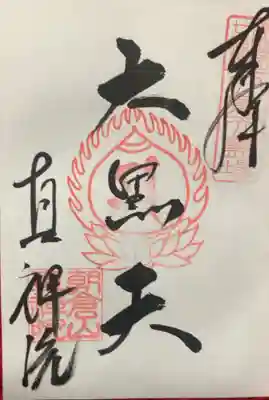 奉
大黒天
真禅院
朝倉山